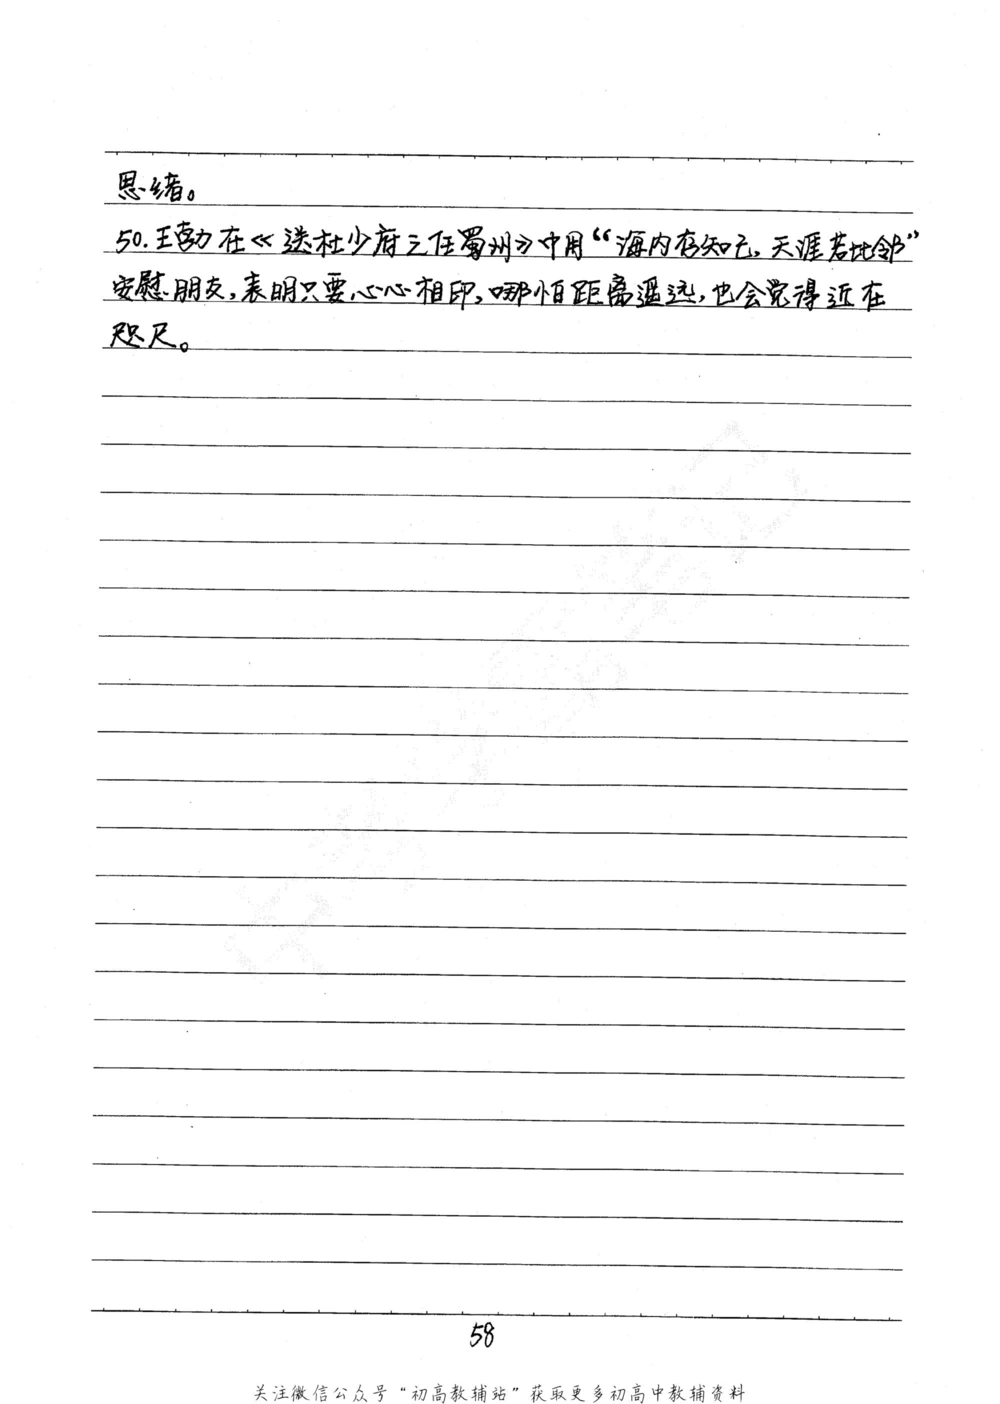 思绪。
50.王勃在《送杜少府之任蜀州》中用“海内存知己,天涯若比邻”
安慰朋友,表明只要心心相印,哪怕距离遥远,也会觉得近在
咫尺。
58
关注微信公众号“初高教辅站”获取更多初高中教辅资料